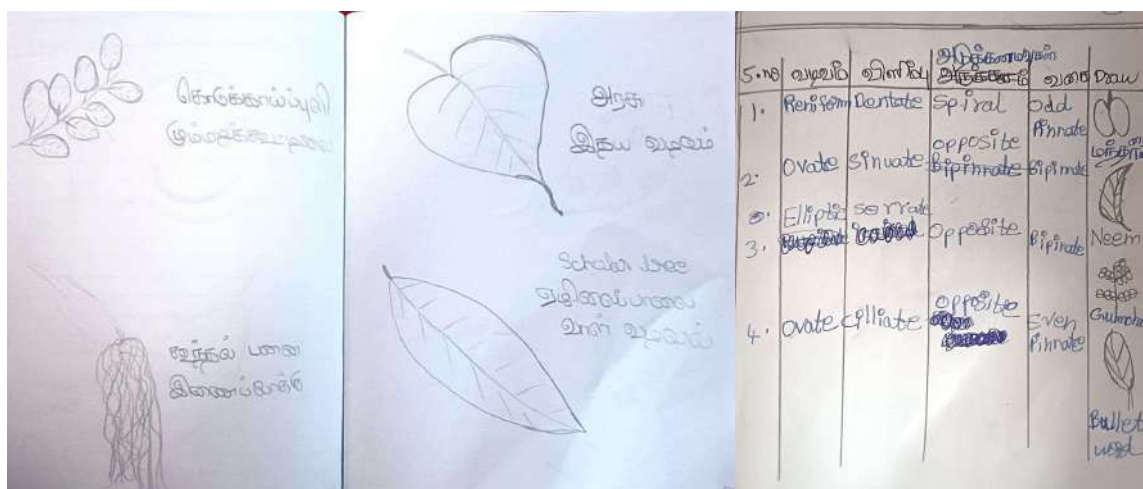 கொடுக்காய்ப்புளி
மும்மடிக்கூட்டிலை
கூந்தல் பனை
அரசு
இதய வடிவம்
Scholar tree
ஏழிலைப்பாலை
வாள் வடிவம்
S.no வடிவம் விளிம்பு வகை Draw
1. Reniform Dentate Spiral Odd Pinnate
மந்தாரை
2. Ovate Sinuate opposite Bipinnate Bipinnate
Neem
3. Elliptic serrate Opposite Bipinate
4. Ovate Cilliate opposite Even Pinnate
Bullet wood